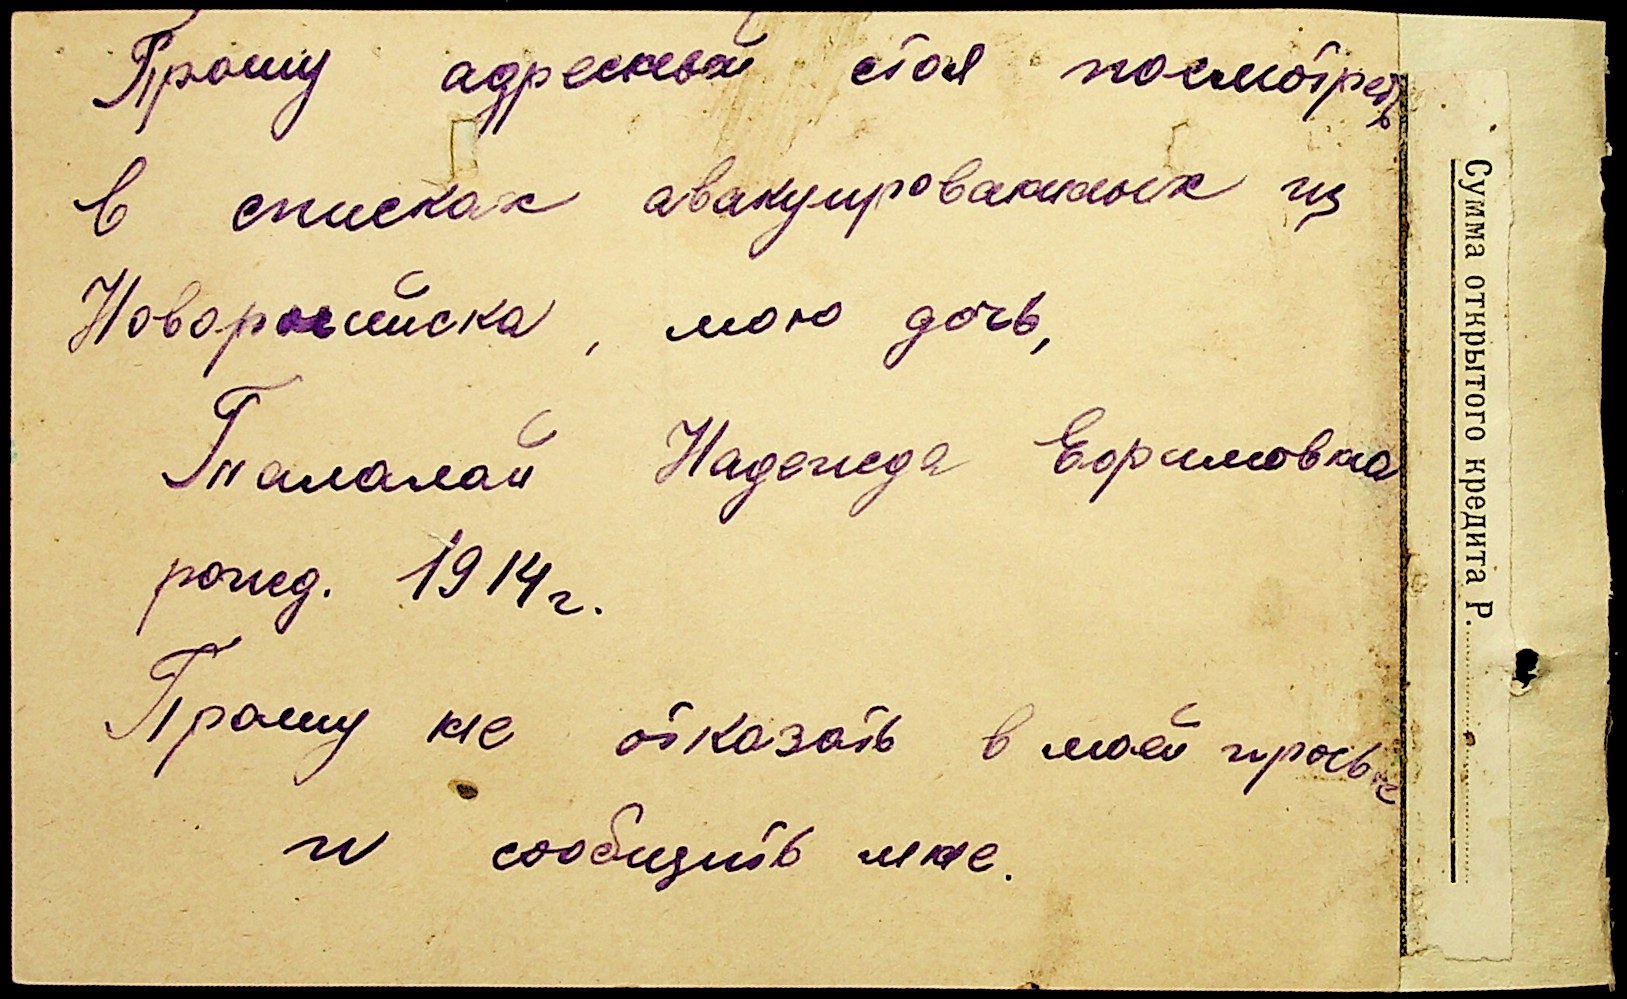 Прошу адресный стол посмотреть
в списках авакуированных из
Новоросийска, мою дочь,
Талалай Надежда Ефримовна
рожд. 1914 г.
Прошу не отказать в моей просьбе
и сообщить мне.
Сумма открытого кредита Р.